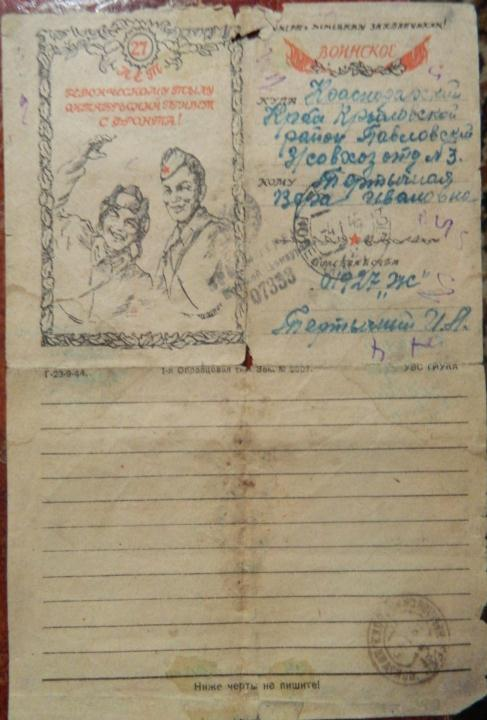 27
ЛЕТ
ГЕРОИЧЕСКОМУ ТЫЛУ
ОКТЯБРЬСКИЙ ПРИВЕТ
С ФРОНТА!
СМЕРТЬ НЕМЕЦКИМ ЗАХВАТЧИКАМ!
ВОИНСКОЕ
КУДА Краснодарский
Край Крыловской
район Павловский
З/совхоз отд. N 3.
КОМУ Тертычная
Вера Ивановна
01927 "Ж"
Тертычный И.А.
07333
Г-23-9-44.
1-я Образцовая тип. Зак. № 2001.
УВС ГАУКА
Ниже черты не пишите!